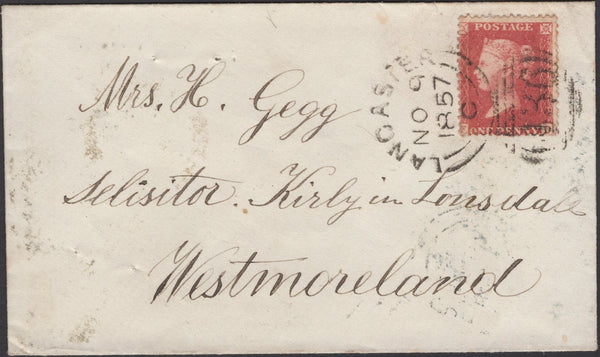 POSTAGE
LANCASTER
NO 9
1857
C
Mrs. H. Gegg
Selisitor. Kirly in Lonsdale
Westmoreland